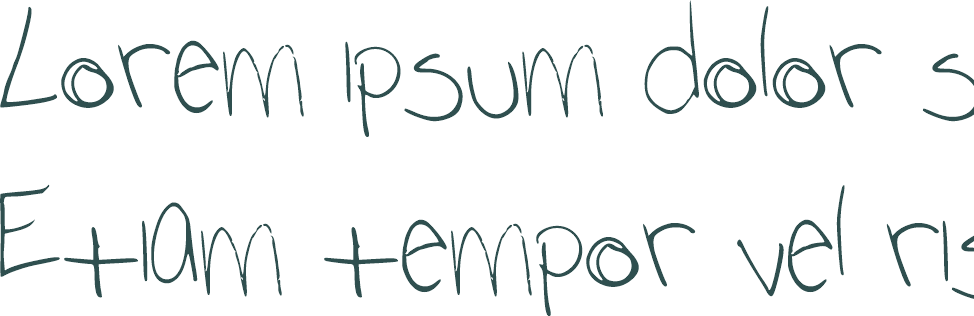 Lorem ipsum dolor s
Etiam tempor vel ris